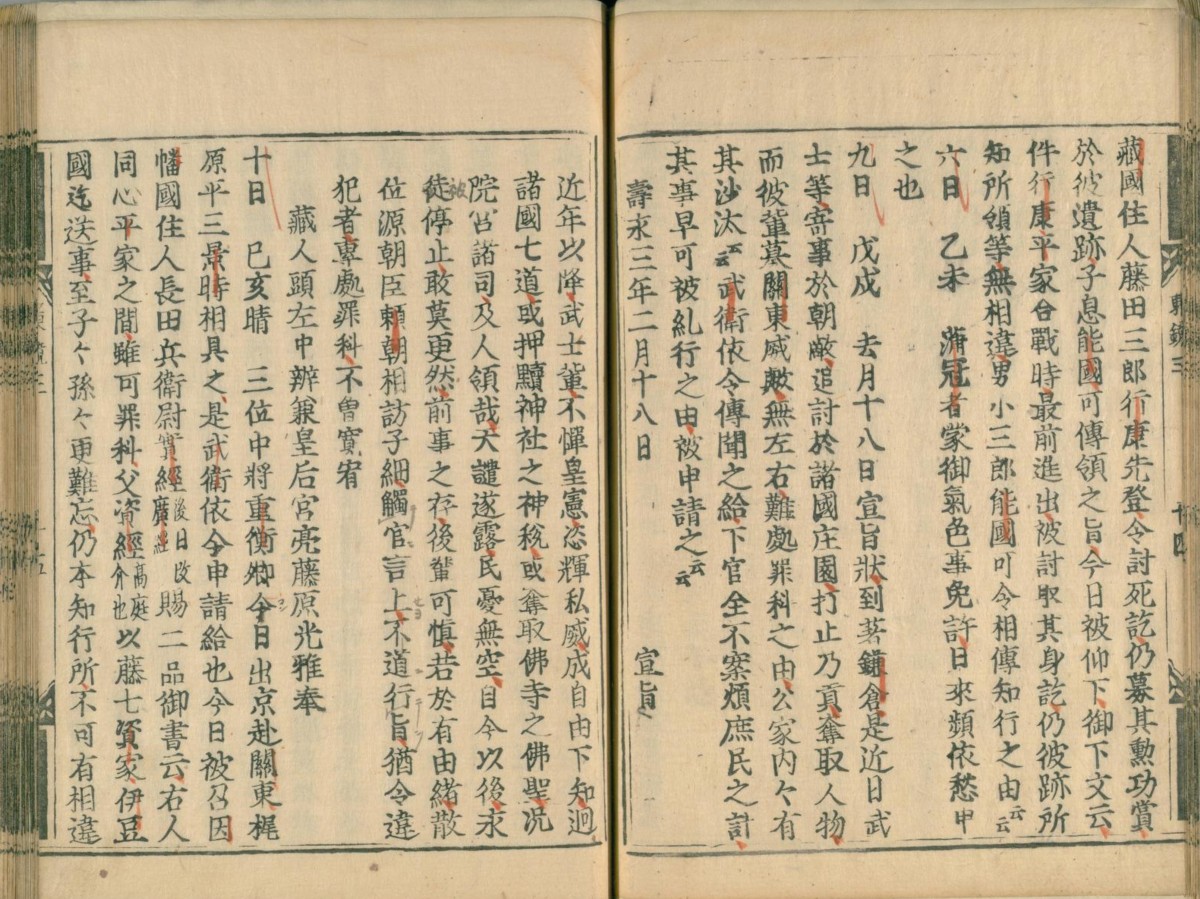 藏國住人藤田三郎行康先登令討死訖仍募其勲功賞
於彼遺跡子息能國可傳領之旨今日被仰下御下文云
件行康平家合戰時最前進出被討取其身訖仍彼跡所
知所領等無相違男小三郎能國可令相傳知行之由云云
六日 乙未 蒲冠者蒙御氣色事免許日來頻依愁申
之也
九日 戊戌 去月十八日宣旨狀到著鎌倉是近日武
士等寄事於朝敵追討於諸國庄園打止乃貢奪取人物
而彼輩募關東威敷無左右難處罪科之由公家内々有
其沙汰云云武衛依令傳聞之給下官全不案煩庶民之計
其事早可被糺行之由被申請之云云
壽永三年二月十八日 宣旨
近年以降武士輩不憚皇憲恣輝私威成自由下知廻
諸國七道或押黷神社之神税或奪取佛寺之佛聖况
院宮諸司及人領哉天譴遂露民憂無空自今以後永
徒停止敢莫更然前事之存後輩可慎若於有由緒散
被
位源朝臣頼朝相訪子細觸官言上不道行旨猶令違
犯者專處罪科不曾寛宥
藏人頭左中辨兼皇后宮亮藤原光雅奉
十日 己亥晴 三位中將重衡卿今日出京赴關東梶
原平三景時相具之是武衛依令申請給也今日被召因
幡國住人長田兵衛尉實經後日改廣經賜二品御書云右人
同心平家之間雖可罪科父資經高庭介也以藤七資家伊豆
國迄送事至子々孫々更難忘仍本知行所不可有相違